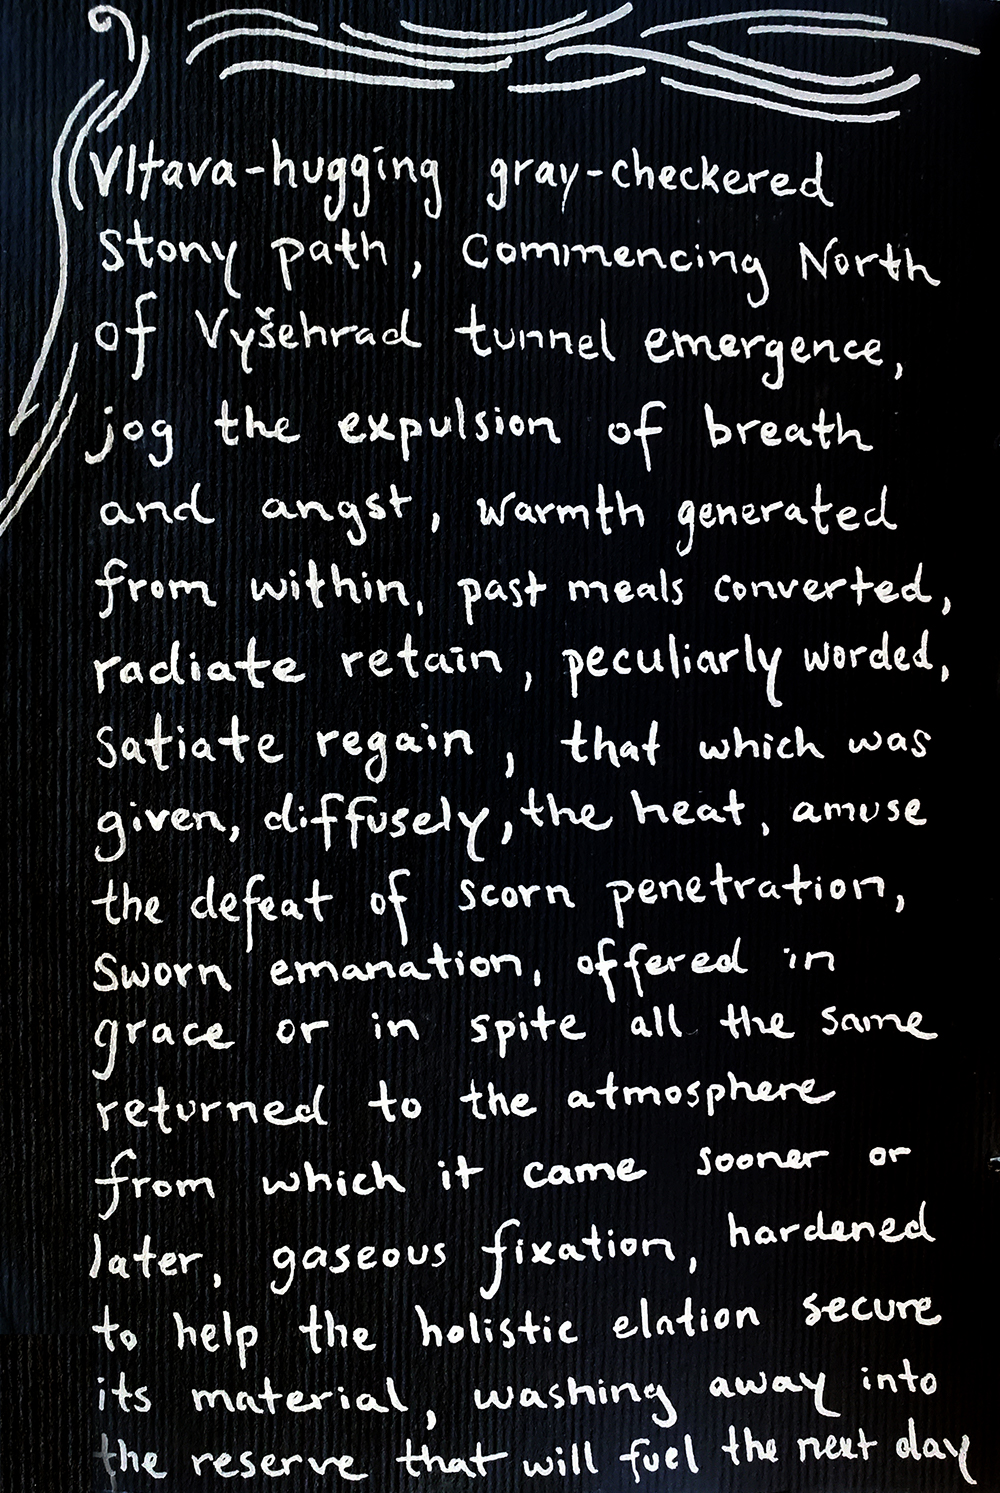 Vltava-hugging gray-checkered
stony path, commencing North
of Vyšehrad tunnel emergence,
jog the expulsion of breath
and angst, warmth generated
from within, past meals converted,
radiate retain, peculiarly worded,
satiate regain, that which was
given, diffusely, the heat, amuse
the defeat of scorn penetration,
sworn emanation, offered in
grace or in spite all the same
returned to the atmosphere
from which it came sooner or
later, gaseous fixation, hardened
to help the holistic elation secure
its material, washing away into
the reserve that will fuel the next day